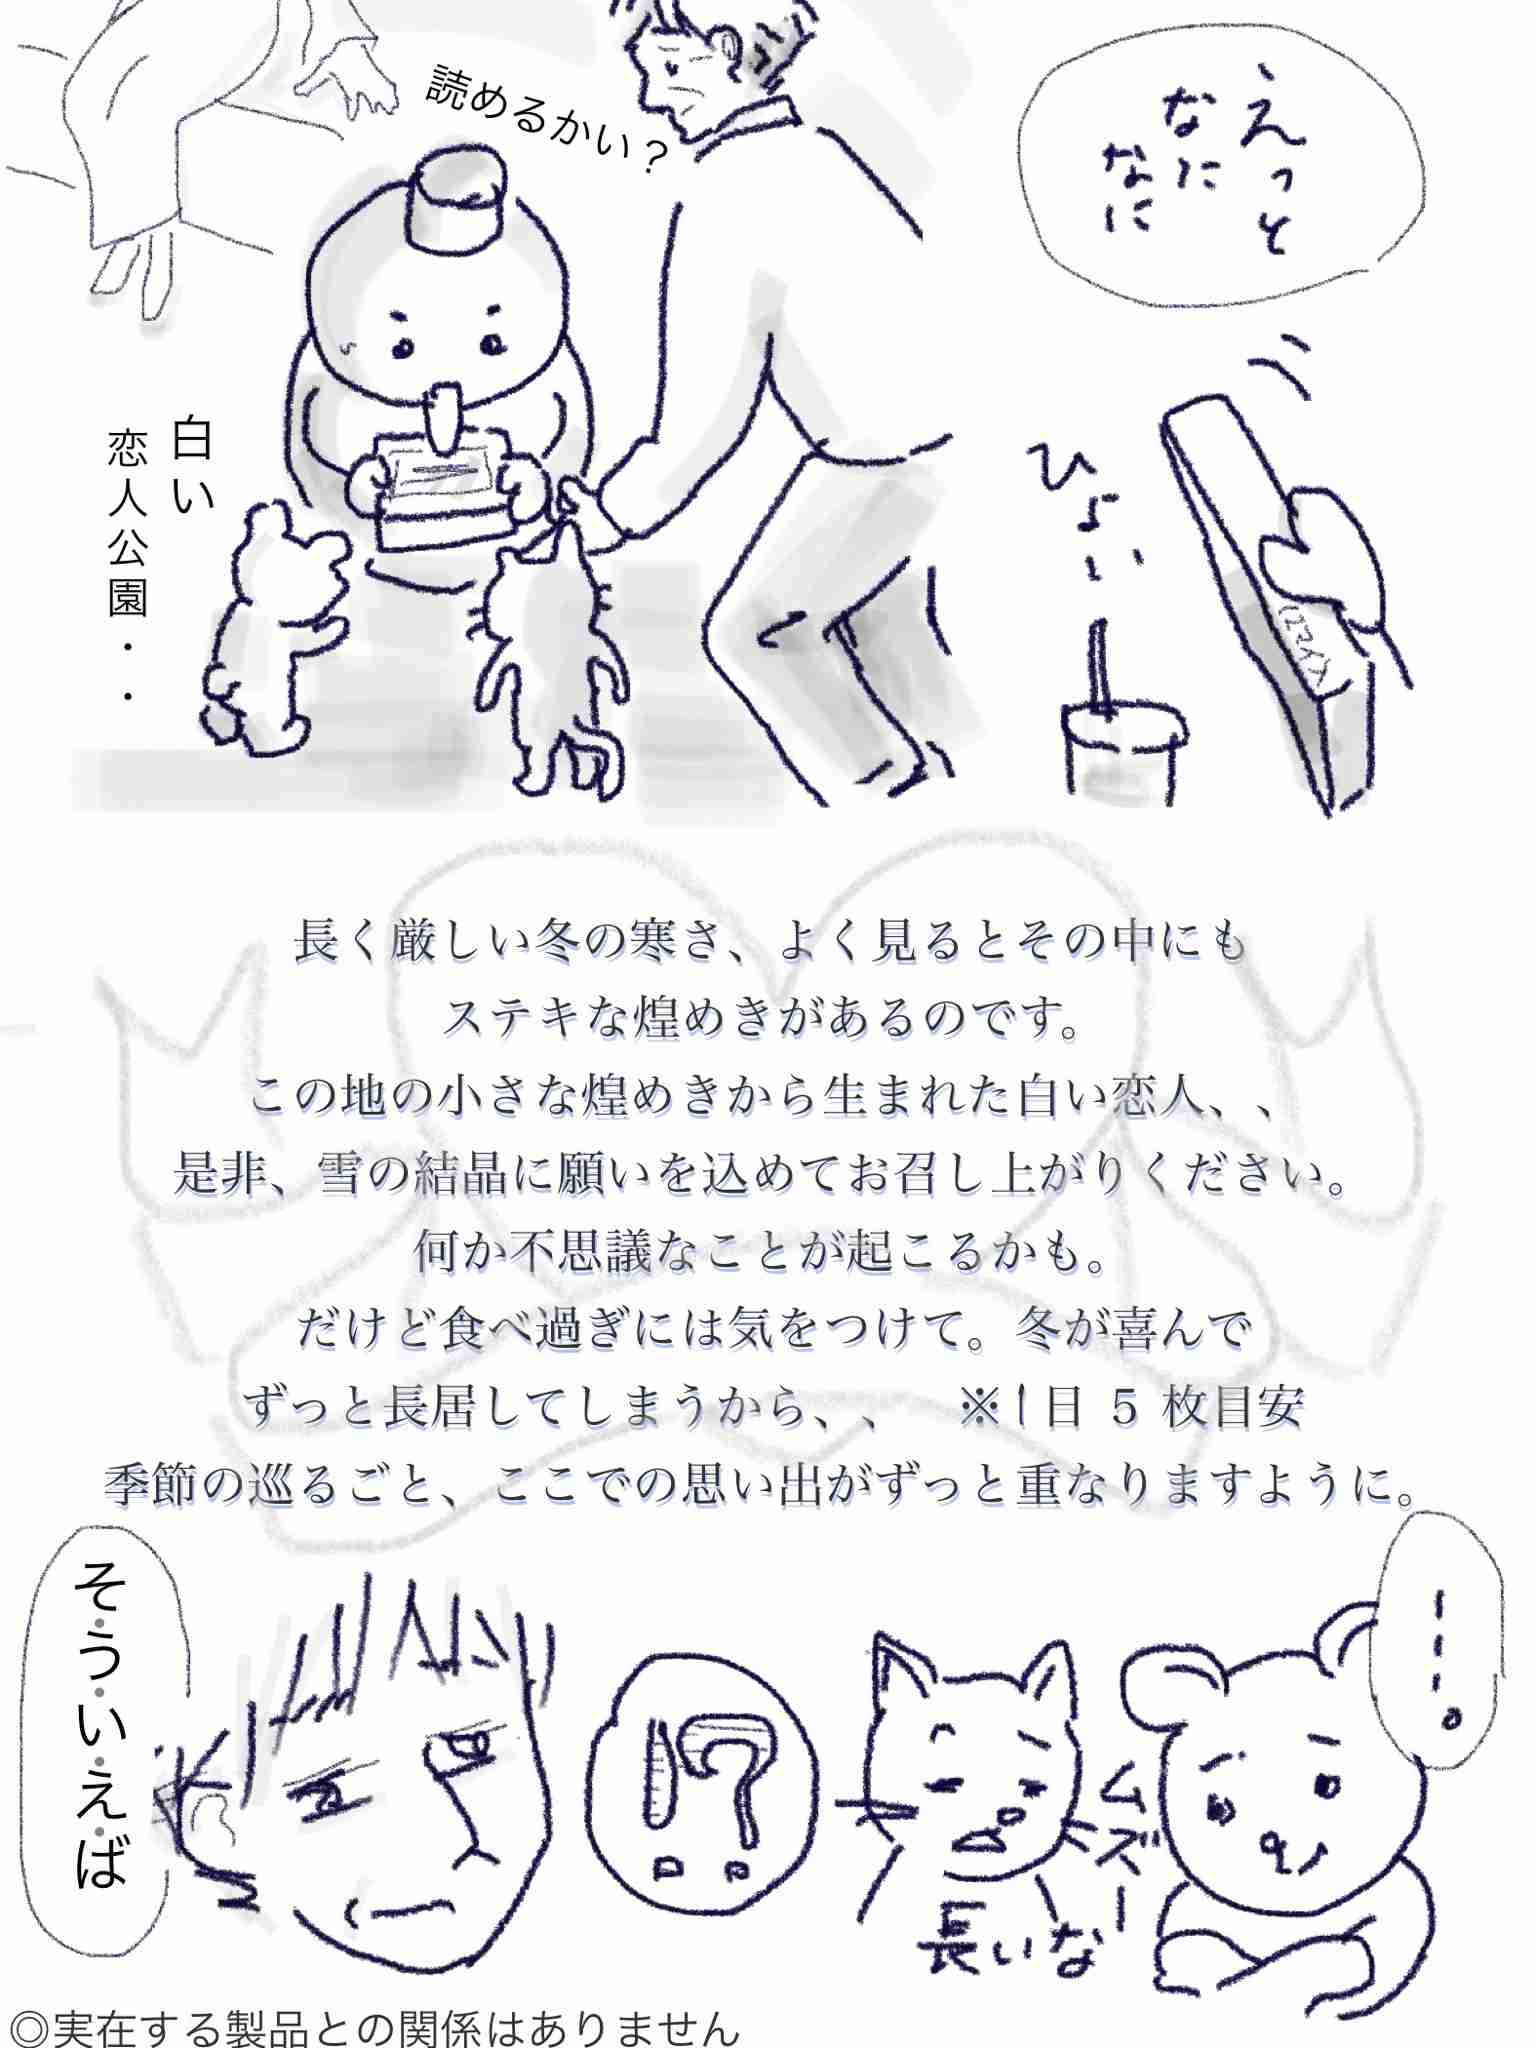 えっと
なに
なに
読めるかい？
ひょい
白い
恋人公園・・
長く厳しい冬の寒さ、よく見るとその中にも
ステキな煌めきがあるのです。
この地の小さな煌めきから生まれた白い恋人、、
是非、雪の結晶に願いを込めてお召し上がりください。
何か不思議なことが起こるかも。
だけど食べ過ぎには気をつけて。冬が喜んで
ずっと長居してしまうから、、　※1日 5 枚目安
季節の巡るごと、ここでの思い出がずっと重なりますように。
…。
ムズー
長いな
!?
そういえば
◎実在する製品との関係はありません